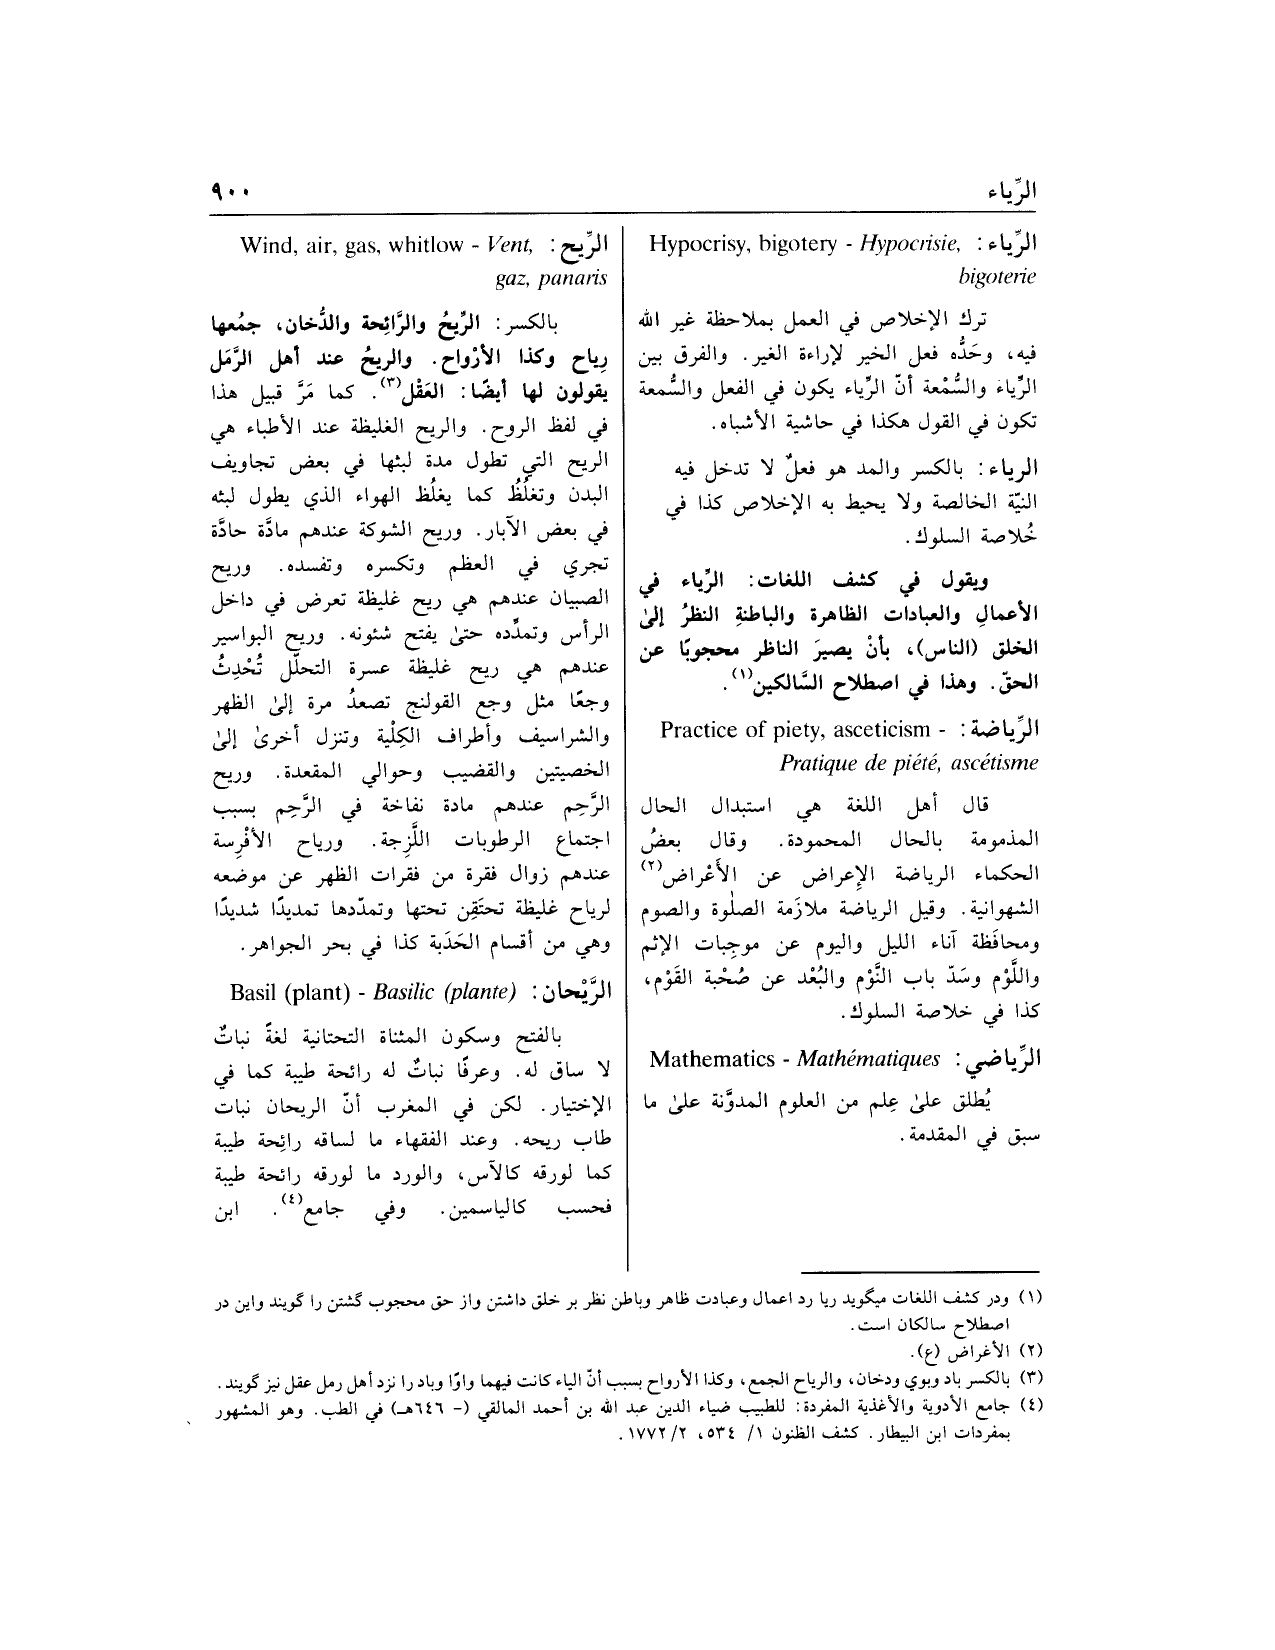 الرِّياء
٩٠٠
الرِّياء : Hypocrisy, bigotery - Hypocrisie,
bigoterie
ترك الإخلاص في العمل بملاحظة غير الله
فيه، وحَدُّه فعل الخير لإراءة الغير. والفرق بين
الرِّياء والسُّمْعة أنّ الرِّياء يكون في الفعل والسُّمعة
تكون في القول هكذا في حاشية الأشباه.
الرياء: بالكسر والمد هو فعلٌ لا تدخل فيه
النيّة الخالصة ولا يحيط به الإخلاص كذا في
خُلاصة السلوك.
ويقول في كشف اللغات: الرِّياء في
الأعمالِ والعبادات الظاهرة والباطنةِ النظرُ إلىٰ
الخلق (الناس)، بأنْ يصيرَ الناظر محجوبًا عن
الحقّ. وهذا في اصطلاح السَّالكين(١).
الرِّياضة: Practice of piety, asceticism -
Pratique de piété, ascétisme
قال أهل اللغة هي استبدال الحال
المذمومة بالحال المحمودة. وقال بعضُ
الحكماء الرياضة الإعراض عن الأَعْراض(٢)
الشهوانية. وقيل الرياضة ملازَمة الصلٰوة والصوم
ومحافَظة آناء الليل واليوم عن موجِبات الإثم
واللَّوْم وسَدّ باب النَّوْم والبُعْد عن صُحْبة القَوْم،
كذا في خلاصة السلوك.
الرِّياضي: Mathematics - Mathématiques
يُطلق علىٰ عِلم من العلوم المدوَّنة علىٰ ما
سبق في المقدمة.
الرِّيح: Wind, air, gas, whitlow - Vent,
gaz, panaris
بالكسر: الرِّيحُ والرَّائِحة والدُّخان، جمْعها
رِياح وكذا الأرْواح. والريحُ عند أهل الرَّمَل
يقولون لها أيضًا: العَقْل(٣). كما مَرَّ قبيل هذا
في لفظ الروح. والريح الغليظة عند الأطباء هي
الريح التي تطول مدة لبثها في بعض تجاويف
البدن وتغلُظُ كما يغلُظ الهواء الذي يطول لبثه
في بعض الآبار. وريح الشوكة عندهم مادَّة حادَّة
تجري في العظم وتكسره وتفسده. وريح
الصبيان عندهم هي ريح غليظة تعرض في داخل
الرأس وتمدِّده حتىٰ يفتح شئونه. وريح البواسير
عندهم هي ريح غليظة عسرة التحلّل تُحْدِثُ
وجعًا مثل وجع القولنج تصعدُ مرة إلىٰ الظهر
والشراسيف وأطراف الكِلْية وتنزل أخرىٰ إلىٰ
الخصيتين والقضيب وحوالي المقعدة. وريح
الرَّحِم عندهم مادة نفاخة في الرَّحِم بسبب
اجتماع الرطوبات اللَّزِجة. ورياح الأفْرِسة
عندهم زوال فقرة من فقرات الظهر عن موضعه
لرياح غليظة تحتَقِن تحتها وتمدّدها تمديدًا شديدًا
وهي من أقسام الحَدَبة كذا في بحر الجواهر.
الرَّيْحان: Basil (plant) - Basilic (plante)
بالفتح وسكون المثناة التحتانية لغةً نباتٌ
لا ساق له. وعرفًا نباتٌ له رائحة طيبة كما في
الإختيار. لكن في المغرب أنّ الريحان نبات
طاب ريحه. وعند الفقهاء ما لساقه رائِحة طيبة
كما لورقه كالآس، والورد ما لورقه رائحة طيبة
فحسب كالياسمين. وفي جامع(٤). ابن
(١) ودر كشف اللغات ميگويد ريا رد اعمال وعبادت ظاهر وباطن نظر بر خلق داشتن واز حق محجوب گشتن را گويند واين در
اصطلاح سالكان است.
(٢) الأغراض (ع).
(٣) بالكسر باد وبوي ودخان، والرياح الجمع، وكذا الأرواح بسبب أنّ الياء كانت فيهما واوًا وباد را نزد أهل رمل عقل نيز گويند.
(٤) جامع الأدوية والأغذية المفردة: للطبيب ضياء الدين عبد الله بن أحمد المالقي (- ٦٤٦هـ) في الطب. وهو المشهور
بمفردات ابن البيطار. كشف الظنون ١/ ٥٣٤، ٢/ ١٧٧٢.